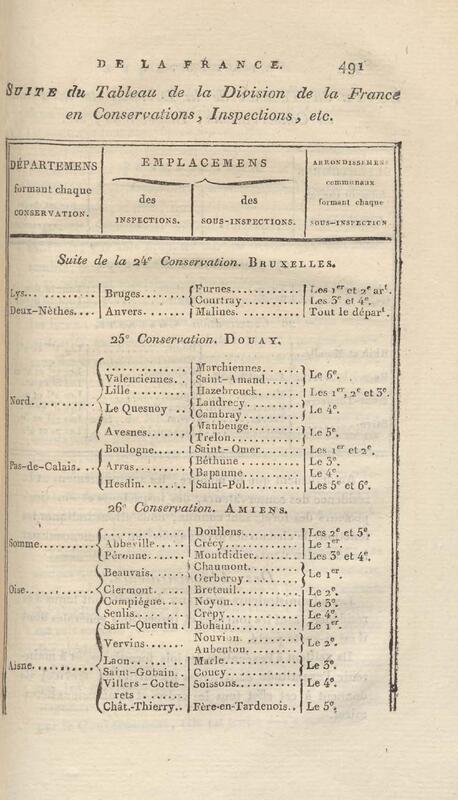 DE LA FRANCE. 491
SUITE du Tableau de la Division de la France
en Conservations, Inspections, etc.
DÉPARTEMENS formant chaque CONSERVATION. | EMPLACEMENS des INSPECTIONS. | EMPLACEMENS des SOUS-INSPECTIONS. | ARRONDISSEMENS communaux formant chaque SOUS-INSPECTION
Suite de la 24e Conservation. BRUXELLES.
Lys... | Bruges... | Furnes... | Les 1er et 2e art.
Courtray... | Les 3e et 4e.
Deux-Nèthes... | Anvers... | Malines... | Tout le départ.
25e Conservation. DOUAY.
Nord... | ... | Marchiennes... | Le 6e.
Valenciennes.. | Saint-Amand...
Lille... | Hazebrouck... | Les 1er, 2e et 3e.
Le Quesnoy .. | Landrecy... | Le 4e.
Cambray...
Avesnes... | Maubeuge... | Le 5e.
Trelon...
Pas-de-Calais... | Boulogne... | Saint-Omer... | Les 1er et 2e.
Arras... | Béthune... | Le 3e.
Bapaume... | Le 4e.
Hesdin... | Saint-Pol... | Les 5e et 6e.
26e Conservation. AMIENS.
Somme... | ... | Doullens... | Les 2e et 5e.
Abbeville... | Crécy... | Le 1er.
Péronne... | Montdidier... | Les 3e et 4e.
Oise... | Beauvais... | Chaumont... | Le 1er.
Gerberoy...
Clermont... | Breteuil... | Le 2e.
Compiègne... | Noyon... | Le 3e.
Senlis... | Crépy... | Le 4e.
Aisne... | Saint-Quentin. | Bohain... | Le 1er.
Vervins... | Nouvion... | Le 2e.
Aubenton...
Laon... | Marle... | Le 3e.
Saint-Gobain.. | Coucy...
Villers-Cotte-
rets ... | Soissons... | Le 4e.
Chât.-Thierry.. | Fère-en-Tardenois.. | Le 5e.